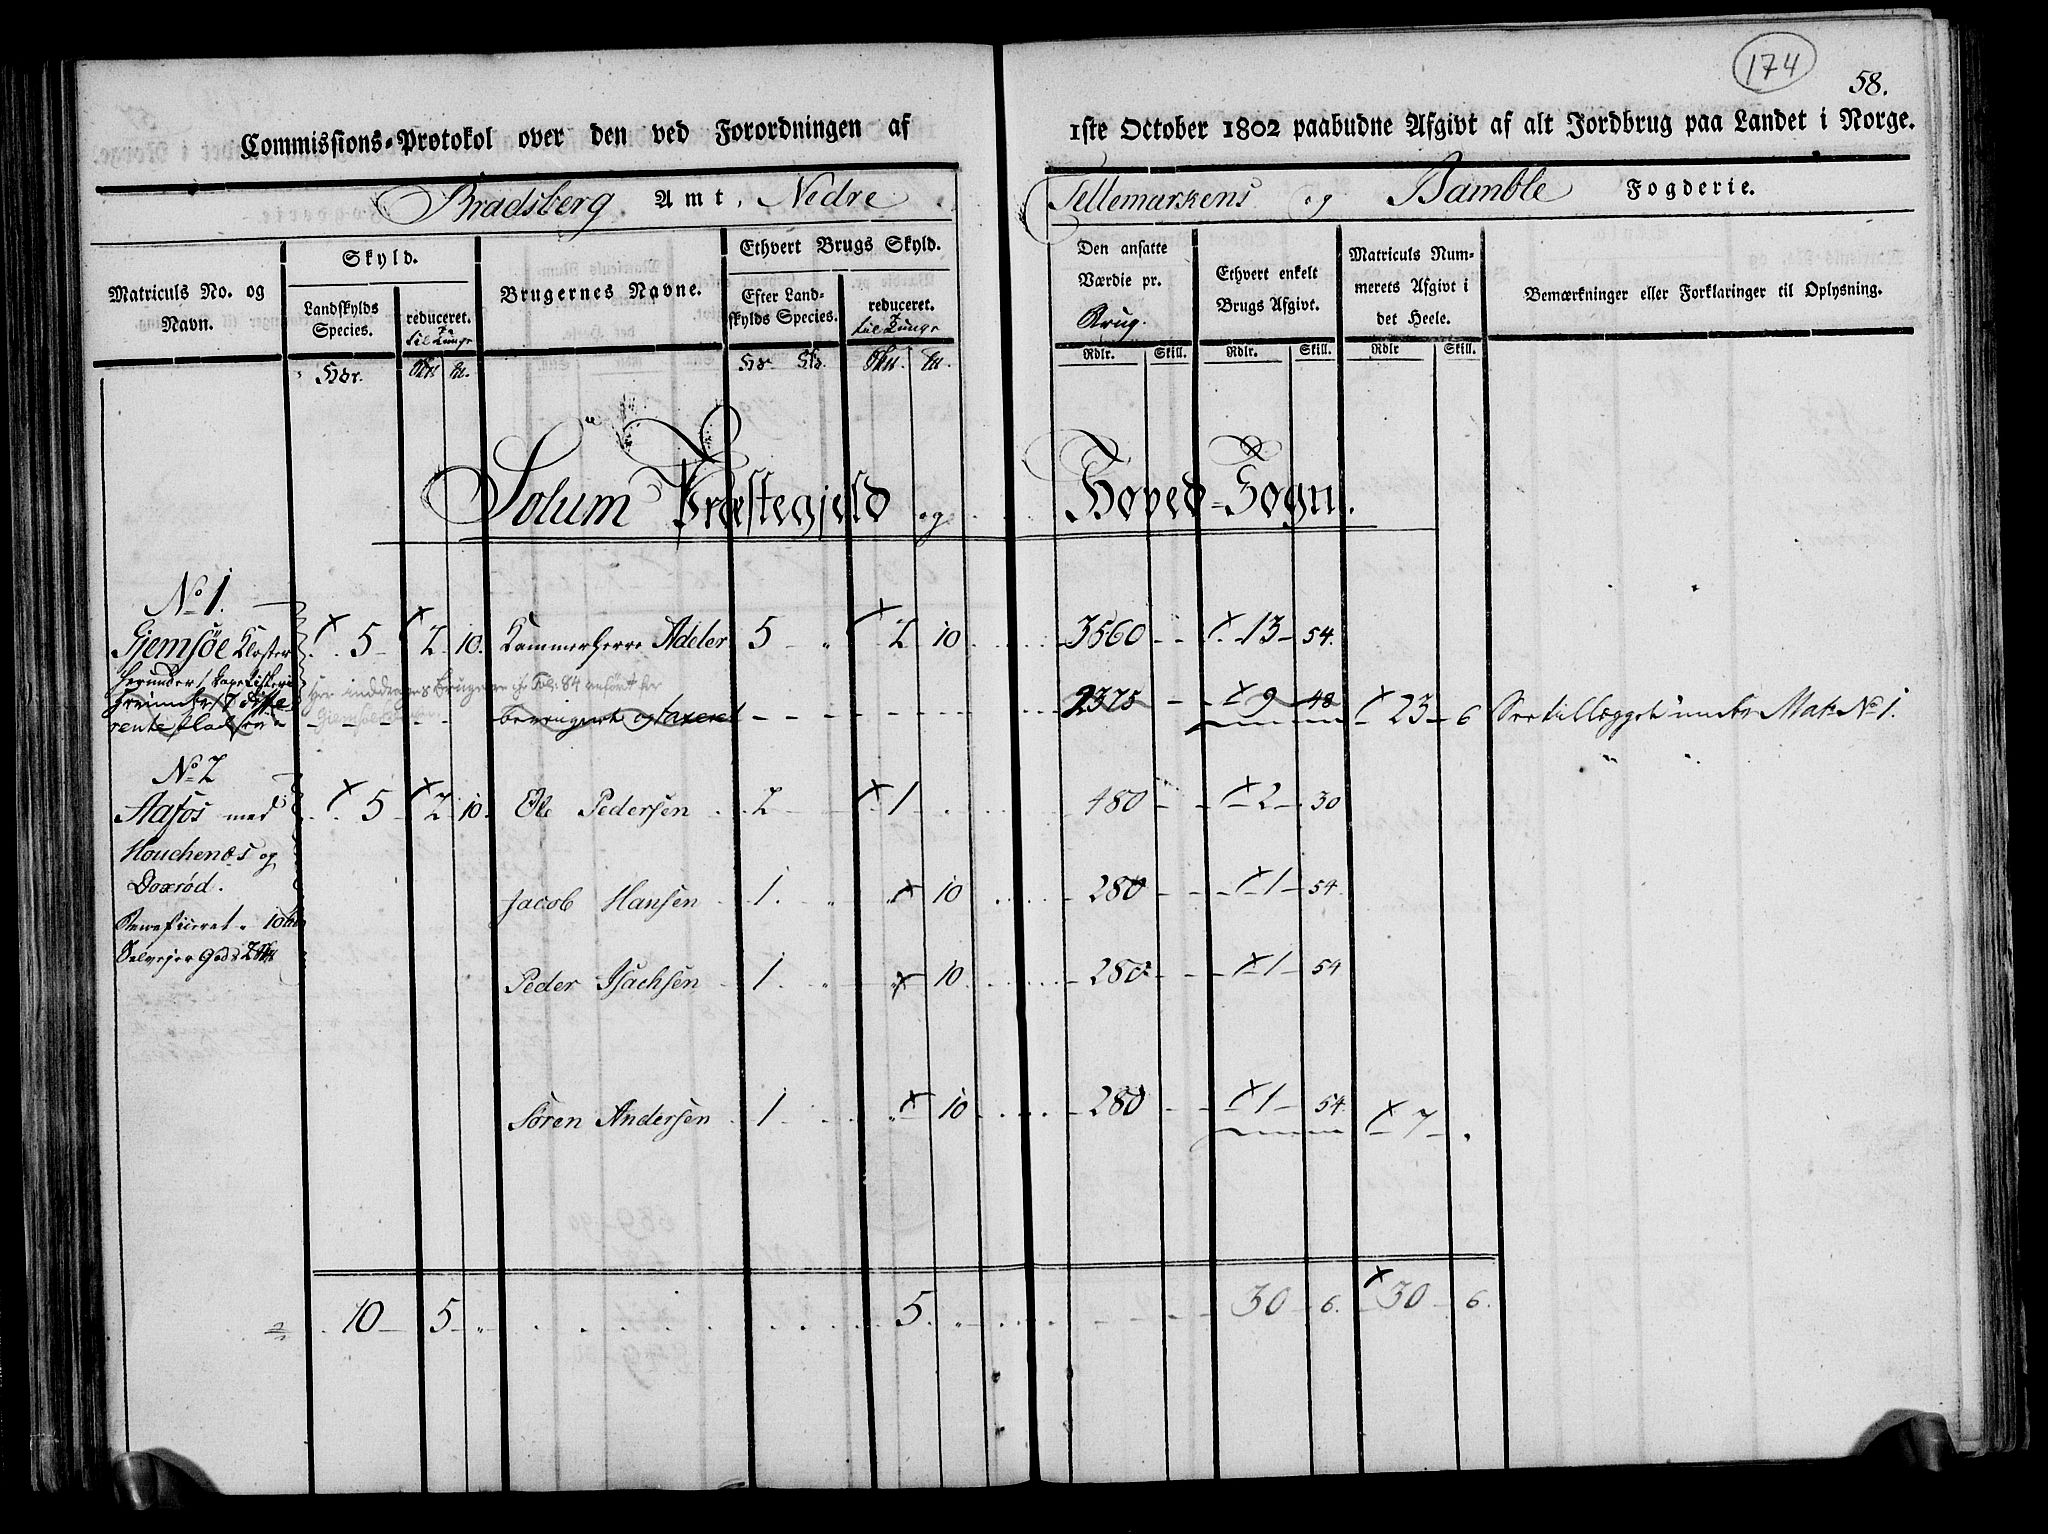 174
58.
Commissions-Protokol over den ved Forordningen af 1ste October 1802 paabudne Afgivt af alt Jordbrug paa Landet i Norge.
Bradsberg Amt, Nedre Tellemarkens og Bamble Fogderie.
Matriculs No. og Navn.
Skyld.
Landskylds Species.
reduceret.
til Tunge
Brugernes Navne.
Ethvert Brugs Skyld.
Efter Landskylds Species.
reduceret.
til Tunge
Den ansatte Værdie pr. Brug.
Ethvert enkelt Brugs Afgivt.
Matriculs Nummerets Afgivt i det Heele.
Bemærkninger eller Forklaringer til Oplysning.
Rdlr. Skill. Rdlr. Skill. Rdlr Skill.
Solum Præstegjeld og Hoved-Sogn.
No 1.
Giemsöe Kloster 5 2 10. Kammerherre Adeler 5 " 2 10 3560 13 54.
herunder
rente pladser bevilget og taxeret 2375 9 48 23 6 See tillægget under Mat: No 1.
No 2
Aafos med 5 2 10. Ole Pedersen 2 1 480 2 30
Houchenæs og
Doxrød. Jacob Hansen 1. " 10 280 1 54
Beneficeret 10
Selvejer Gods 2 Peder Isachsen 1. " 10. 280 1 54
Sören Andersen 1 " 10 280 1 54 7 "
10 5 " 5. " 30 6. 30 6.